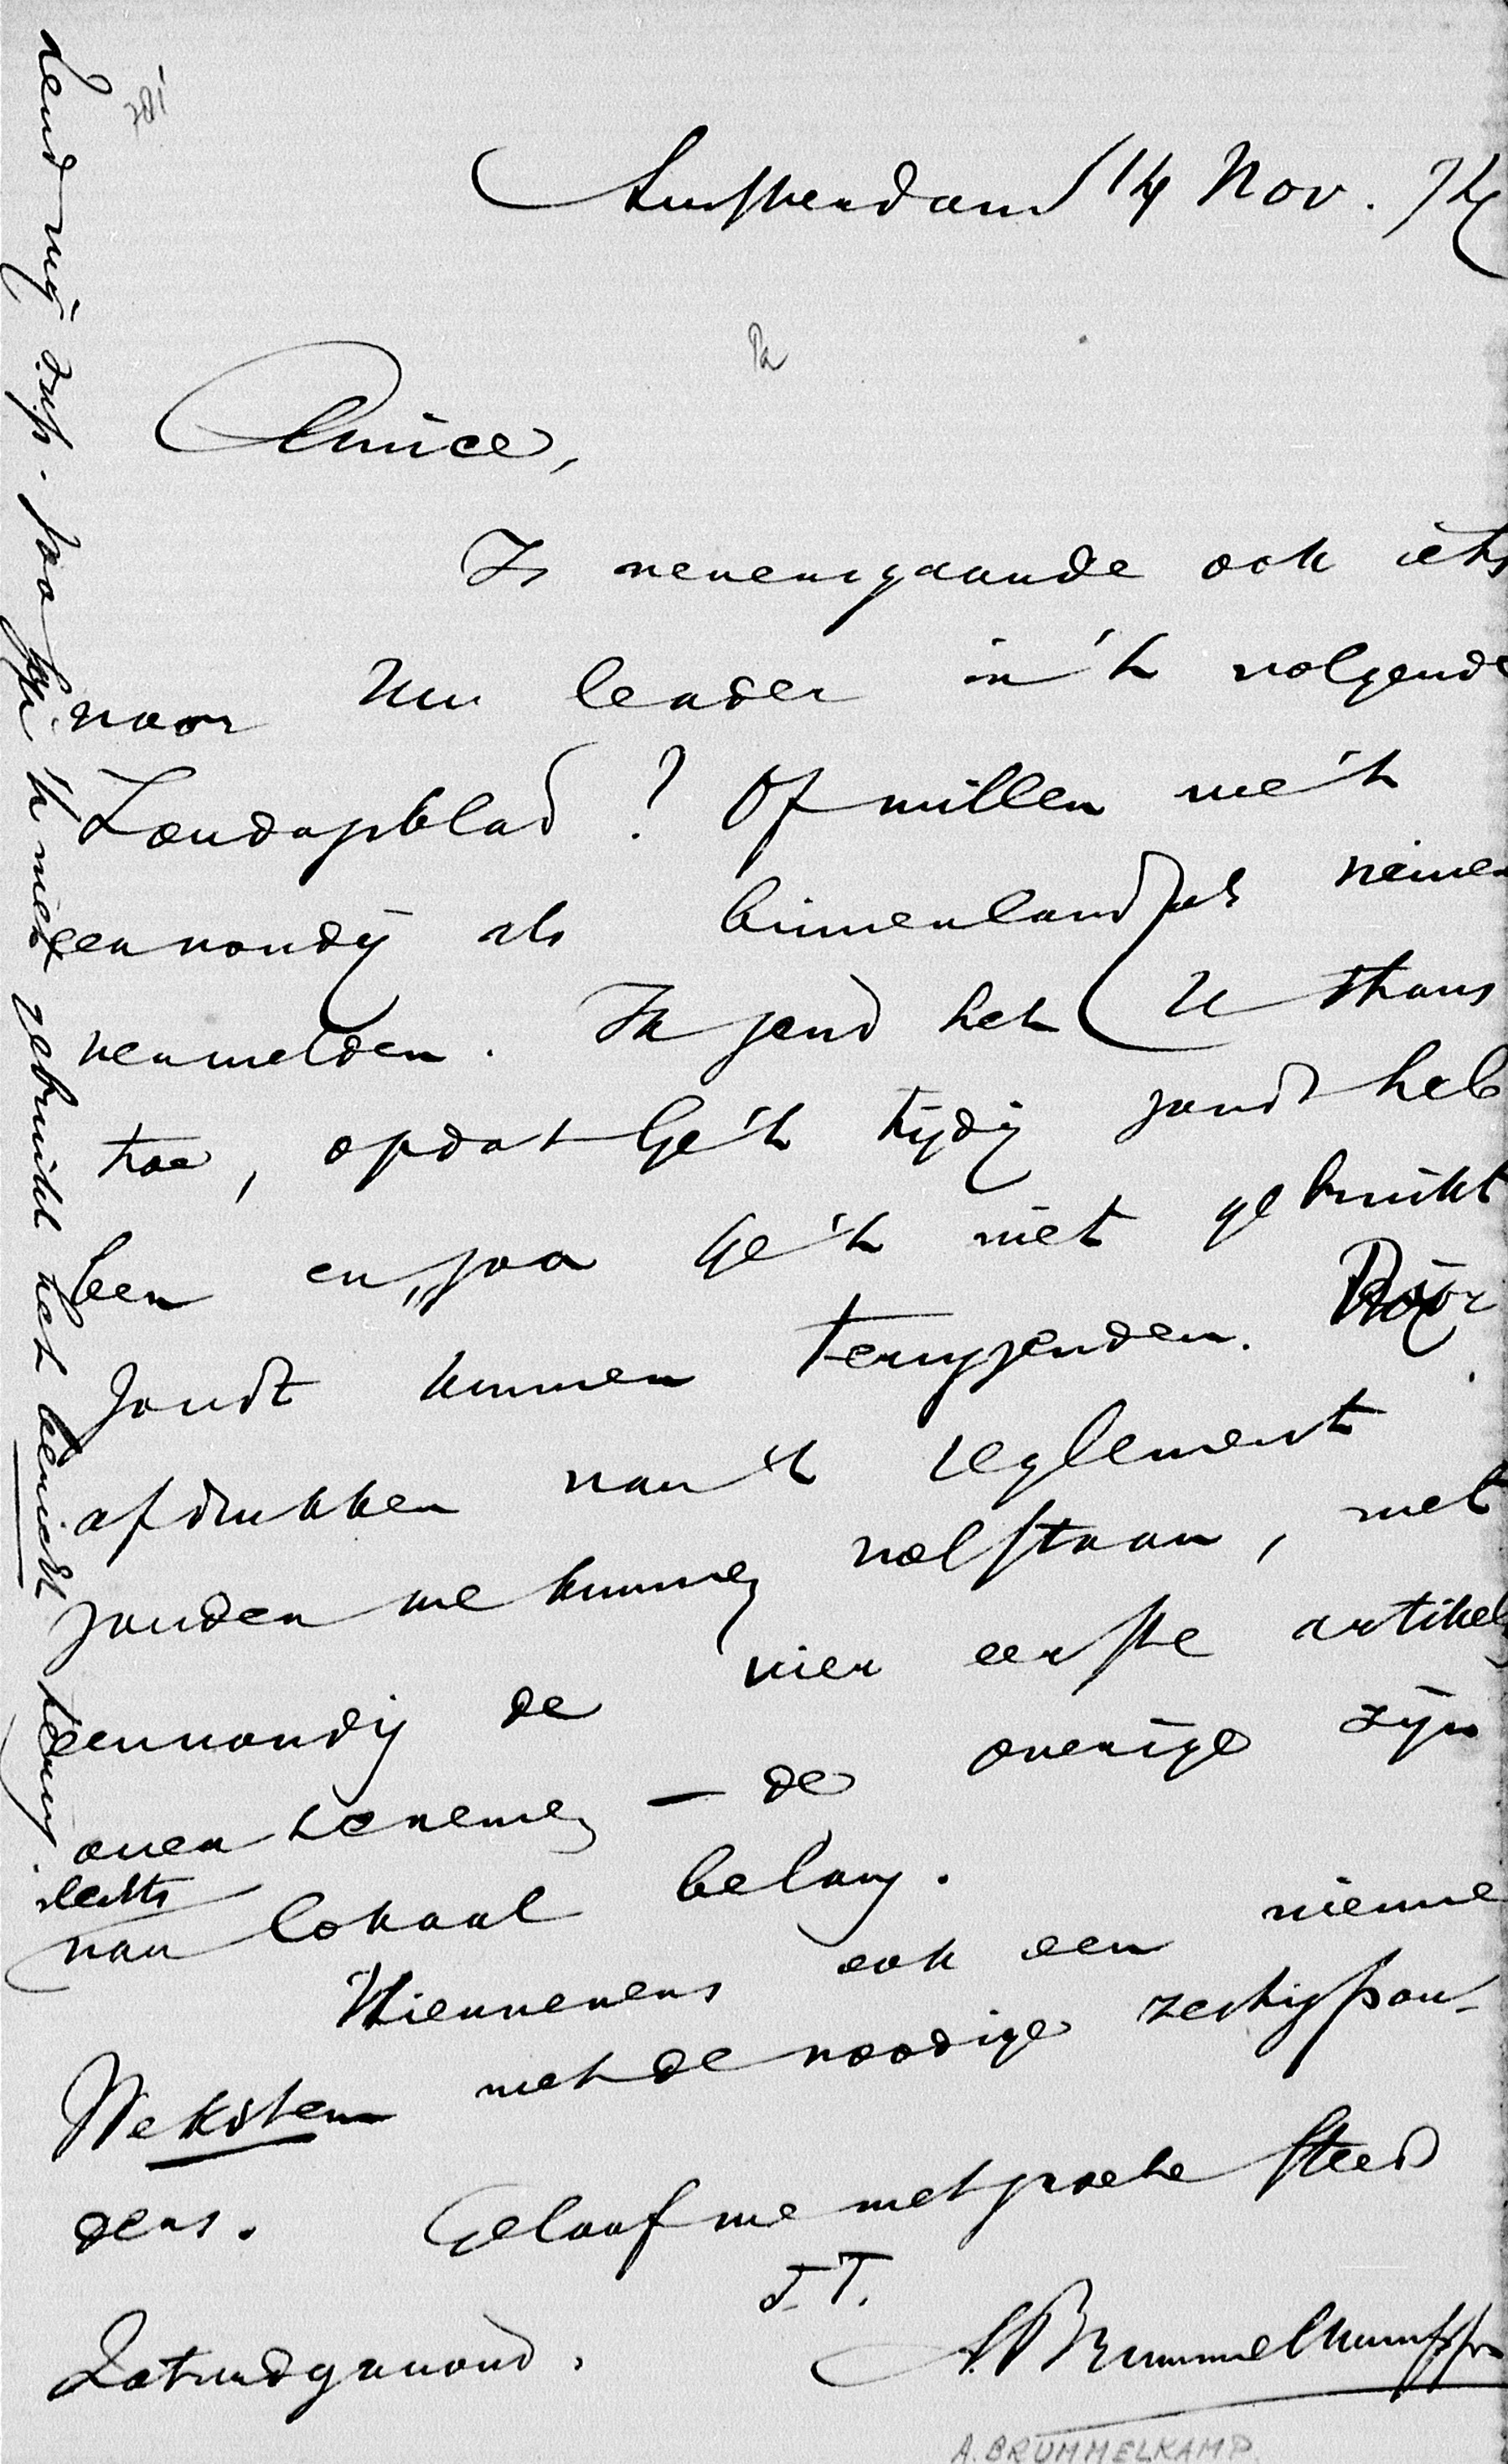 Amsterdam 14 Nov. 74
Amice,
Is nevensgaande ook iets
voor Uw leader in 't volgende
Zondagsblad? Of willen we 't
eenvoudig als binnenlandsch nieuws
vermelden. Ik zend het U thans
toe, opdat Ge 't tijdig zoudt heb
ben en, zoo Ge 't niet gebruikt
zoudt kunnen terugzenden. Voor
afdrukken van 't reglement
zouden we kunnen volstaan, met
eenvoudig de vier eerste artikels
over te nemen — de overige zijn
slechts
van lokaal belang.
Hiernevens ook een nieuwe
Wekstem met de noodige zestig pon-
dens. Geloof me met groete steeds
T.T.
Zaturdagavond. A. Brummelkamp Jr
A. BRUMMELKAMP
Zend mij dus. zoo Ge 't niet gebruikt het bericht terug.
281